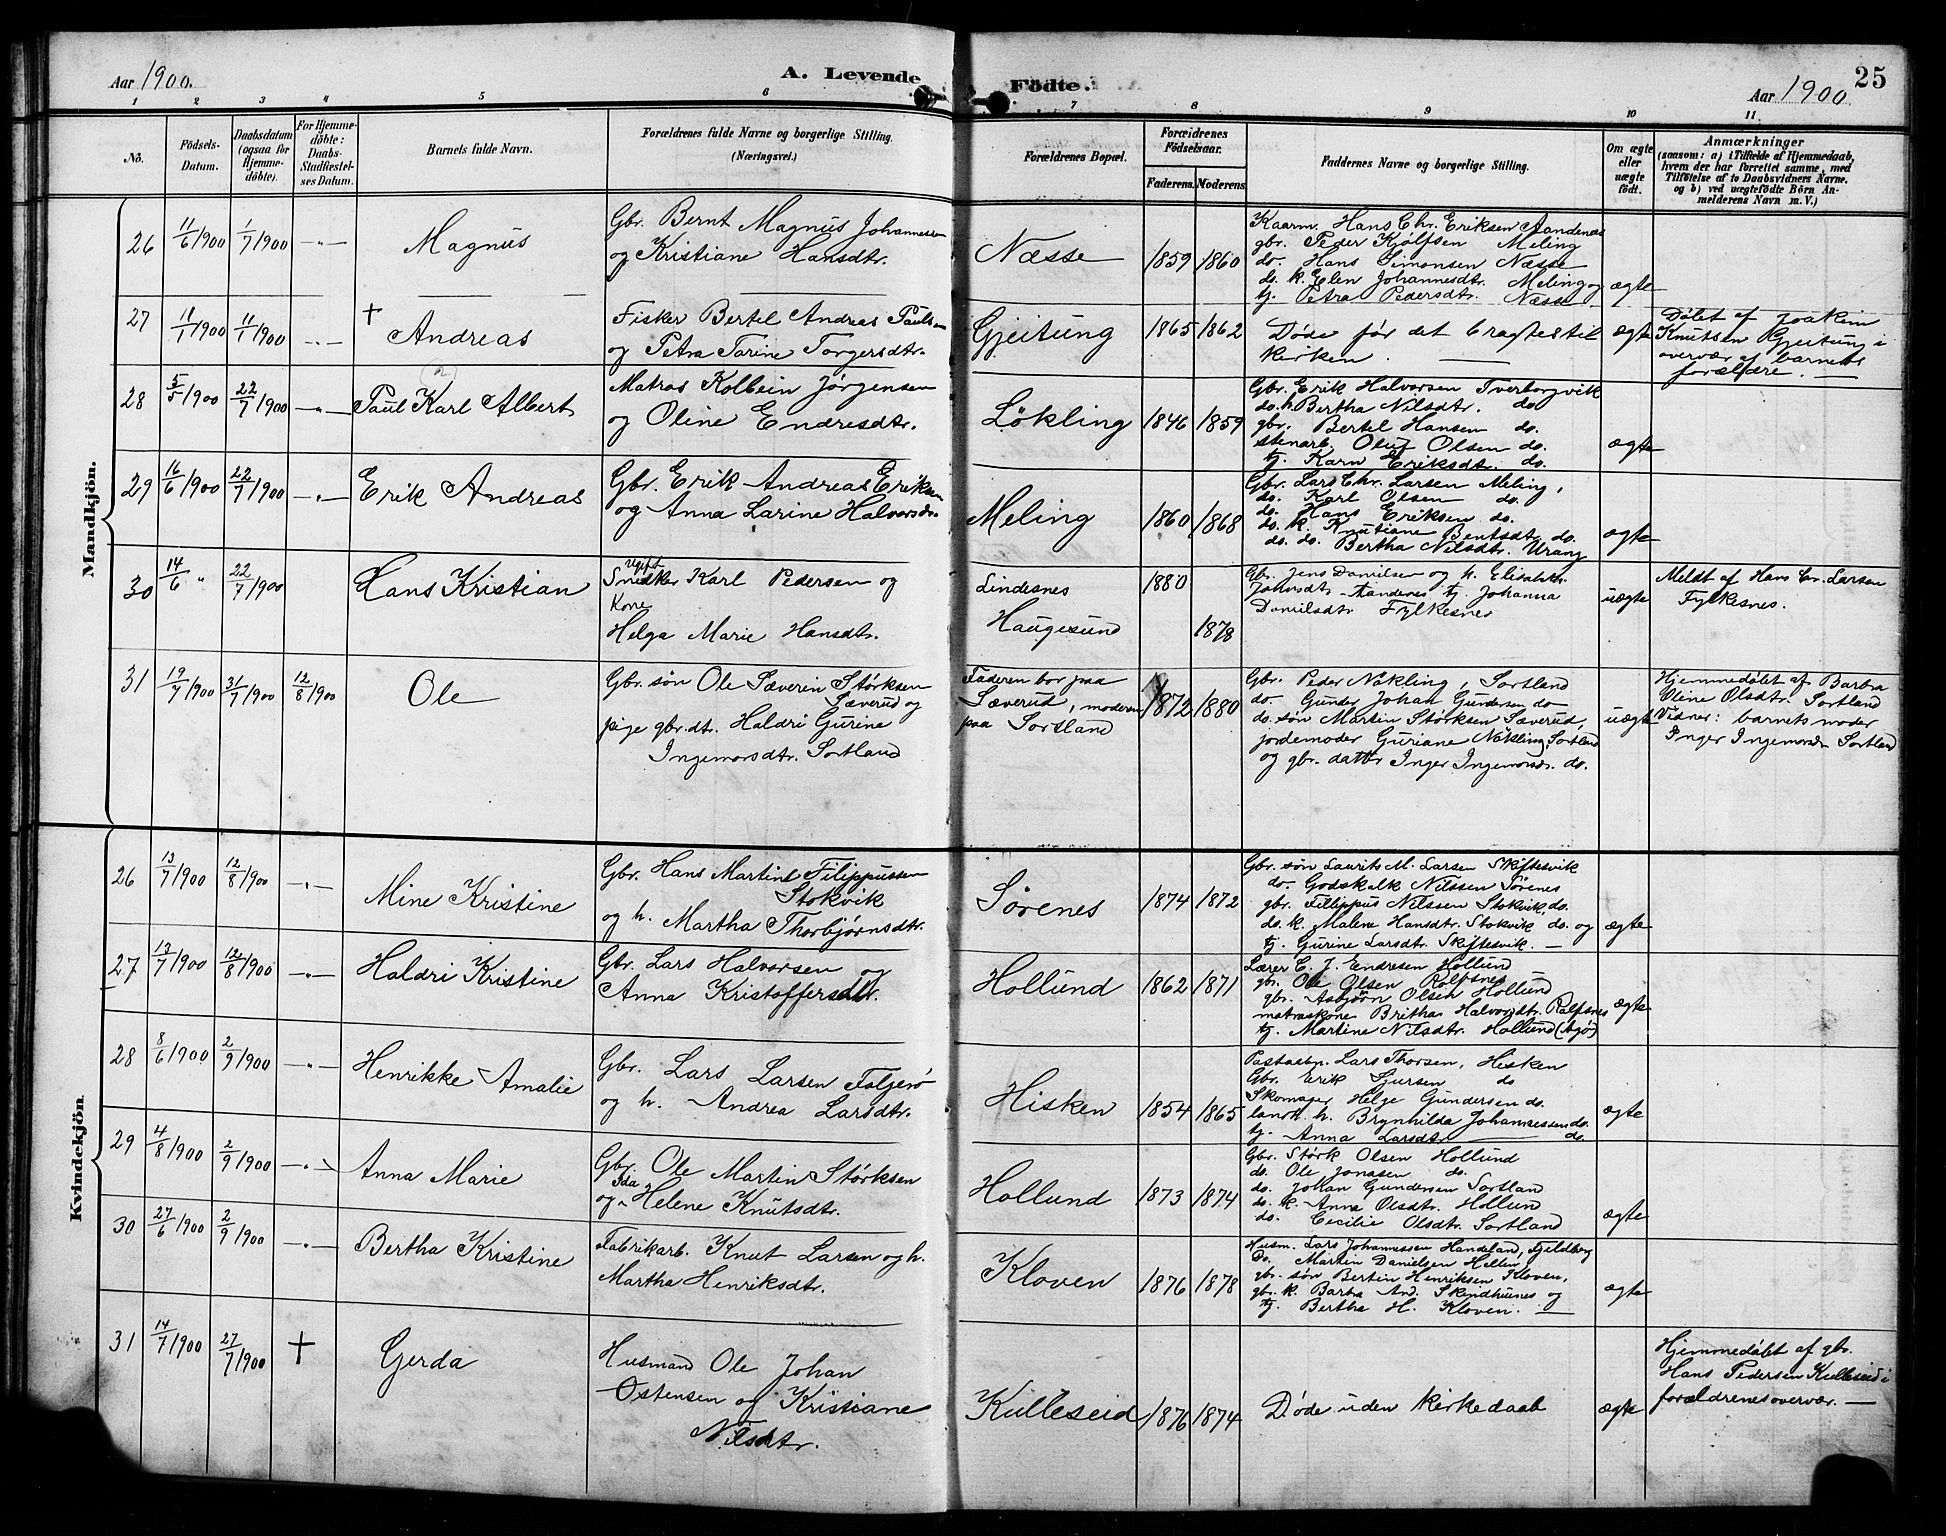 Aar 1900.
A. Levende Födte.
Aar 1900.
25
1 2 3 4 5 6 7 8 9 10 11.
No.
Födsels-
Datum.
Daabsdatum
(ogsaa for
Hjemme-
döbte).
For Hjemme-
döbte:
Daabs-
Stadfæstel-
ses Datum.
Barnets fulde Navn.
Forældrenes fulde Navne og borgerlige Stilling.
(Næringsvei.)
Forældrenes Bopæl.
Forældrenes
Födselsaar.
Faderens. Moderens.
Faddernes Navne og borgerlige Stilling.
Om ægte
eller
uægte
födt.
Anmærkninger
(saasom: a) i Tilfælde af Hjemmedaab,
hvem der har forrettet samme, med
Tilföielse af to Daabsvidners Navne.
og b) ved uægtefödte Börn An-
melderens Navn m. V.)
Mandkjön.
26 11/6 1900 1/7 1900 -"-
Magnus
Gbr. Bernt Magnus Johannessen
og Kristiane Hansdtr.
Næsse
1859 1860
Kaarm. Hans Chr. Eriksen Aandenæs
gbr. Peder Kjølfsen Meling
do. Hans Simonsen Næsse
do. k. Elen Johannesdtr. Meling og
tj. Petra Pedersdtr. Næsse
ægte
27 11/1 1900 11/1 1900 -"-
† Andreas
Fisker Bertel Andreas Paulsen
og Petra Tarine Torgersdtr.
Gjeitung
1865 1862
Døde før det bragtes til
kirken.
ægte
Døbt af Joakim
Knutsen Gjeitung i
overvær af barnets
forældre.
28 5/5 1900 22/7 1900 -"-
Paul Karl Albert
Matros Kolbein Jørgensen
og Oline Endresdtr.
Løkling
1846 1859
Gbr. Erik Halvorsen Tverborgvik
do. h. Bertha Nilsdtr. do.
gbr. Bertel Hansen do.
stenarb. Oluf Olsen do.
tj. Karn Eriksdtr. do.
ægte
29 16/6 1900 22/7 1900 -"-
Erik Andreas
Gbr. Erik Andreas Eriksen
og Anna Larine Halvorsdr.
Meling
1860 1868
Gbr. Lars Chr. Larsen Meling,
do. Karl Olsen do.
do. Hans Eriksen do.
do. k. Knutiane Bentsdtr. do.
do. do. Bertha Nilsdtr. Urang
ægte
30 14/6 " 22/7 1900
Hans Kristian
Ugift
Snedker Karl Pedersen og
Kone
Helga Marie Hansdtr.
Lindesnes
Haugesund
1880
1878
Gbr. Jens Danielsen og h. Elisabeth
Aandenes tj. Johanna
Danielsdtr Fylkesnes
uægte
Meldt af Hans Chr. Larsen
Fylkesnes.
31 19/7 1900 31/7 1900 12/8 1900
Ole
Gbr. søn Ole Sæverin Størksen
Sæverud og
pige gbr.dt. Haldri Gurine
Ingemorsdtr. Sortland
Faderen bor paa
Sæverud, moderen
paa Sortland
1872 1880
Gbr. Peder Nøkling, Sortland
do. Gunder Johan Gundersen do
do. søn Martin Størksen Sæverud,
jordemoder Guriane Nøkling, Sortland
og gbr. dattr Inger Ingemorsdr. do.
uægte
Hjemmedøbt af Barbra
Oline Olsdtr. Sortland
Vidner: barnets moder
Inger Ingemorsdr Sortland
Kvindekjön
26 13/7 1900 12/8 1900 -"-
Mine Kristine
Gbr. Hans Martin Filippussen
Stokvik
og h. Martha Thorbjørnsdtr.
Sørenes
1874 1872
Gbr. søn Laurits M. Larsen Skiftesvik
do. Godskalk Nilssen Sørenes
gbr. Fillippus Nilssen Stokvik, do.
do. k. Malene Hansdtr. Stokvik do. og
tj. Gurine Larsdtr. Skiftesvik.
ægte
27 13/7 1900 12/8 1900 -"-
Haldri Kristine
Gbr. Lars Halvorsen og
Anna Kristoffersdtr.
Hollund
1862 1871
Lærer C. J. Endresen Hollund
gbr. Ole Olsen Rolfsnes
gbr. Asbjørn Olsen Hollund
matroskone Britha Halvorsdtr. Rolfsnes
tj. Martine Nilsdtr. Hollund
ægte
28 8/6 1900 2/9 1900 -"-
Henrikke Amalie
Gbr. Lars Larsen Folgerø
og h. Andrea Larsdtr.
Hisken
1854 1865
Lars Thorsen, Hisken
Gbr. Erik Sjursen do
Skomager Helge Gundersen do.
landh. h. Brynhilda Johannessen do.
tj. Anna Larsdtr. do
ægte
29 4/8 1900 2/9 1900 -"-
Anna Marie
Gbr. Ole Martin Størksen
Ida
og Helene Knutsdtr.
Hollund
1873 1874
Gbr. Størk Olsen Hollund
do. Ole Jonasen do.
do. Johan Gundersen Sortland
do. k. Anna Olsdtr. Hollund
do. Cecilie Olsdtr. Sortland
ægte
30 27/6 1900 2/9 1900 -"-
Bertha Kristine
Fabrikarb. Knut Larsen og h.
Martha Henriksdtr.
Kloven
1876 1878
Husm. Lars Johannessen Handeland, Fjeldberg
Do. Martin Danielsen Hellen
gbr. søn Bertin Henriksen Kloven,
gbr. k. Barbra And. og
tj. Bertha H. Kloven.
ægte
31 14/7 1900 27/7 1900 †
Gerda
Husmand Ole Johan
Østensen og Kristiane
Nilsdtr.
Kulleseid
1876 1874
Døde uden kirkedaab
ægte
Hjemmedøbt af gbr.
Hans Pedersen Kulleseid i
forældrenes overvær.